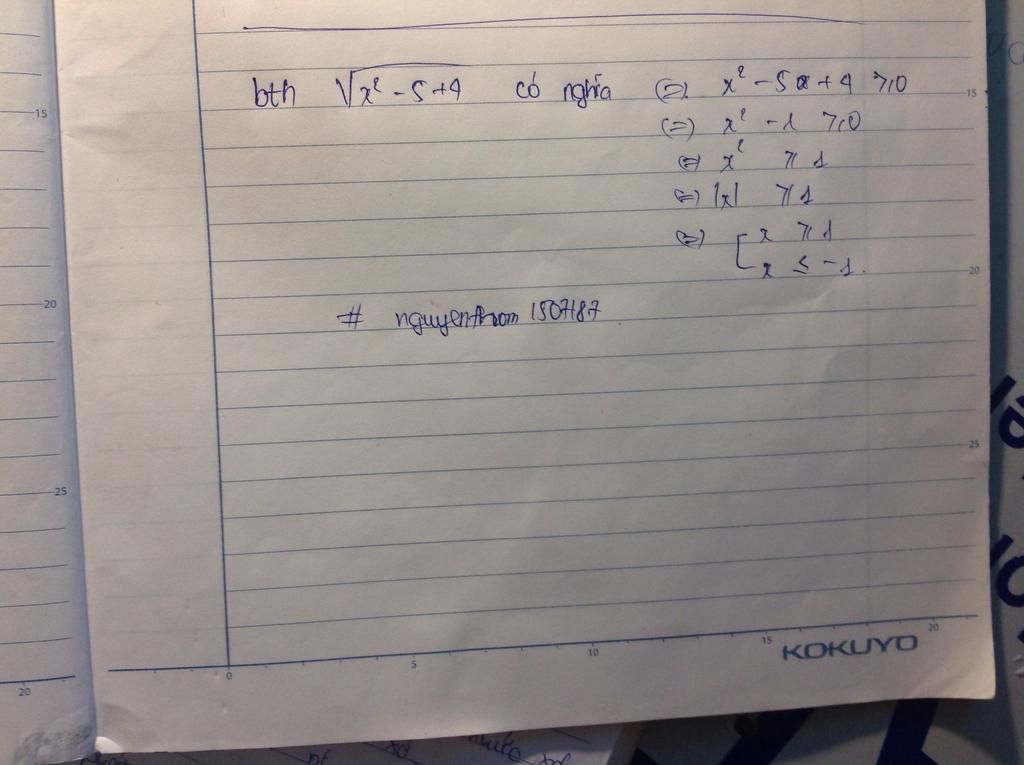 bth √x² - 5 + 4 có nghĩa (=) x² - 5x + 4 ≥ 0
(=) x² - 1 ≥ 0
(=) x² ≥ 1
(=) |x| ≥ 1
(=) [ x ≥ 1
x ≤ -1.
# nguyenthrom 1507187
15
20
25
20
15
20
25
0
5
10
15
20
KOKUYO